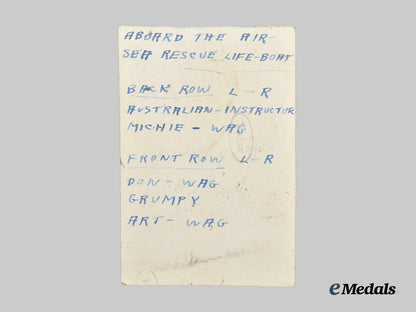 ABOARD THE AIR-
SEA RESCUE LIFE-BOAT
BACK ROW L-R
AUSTRALIAN-INSTRUCTOR
MICHIE - WAG
FRONT ROW L-R
DON - WAG
GRUMPY
ART - WAG
eMedals